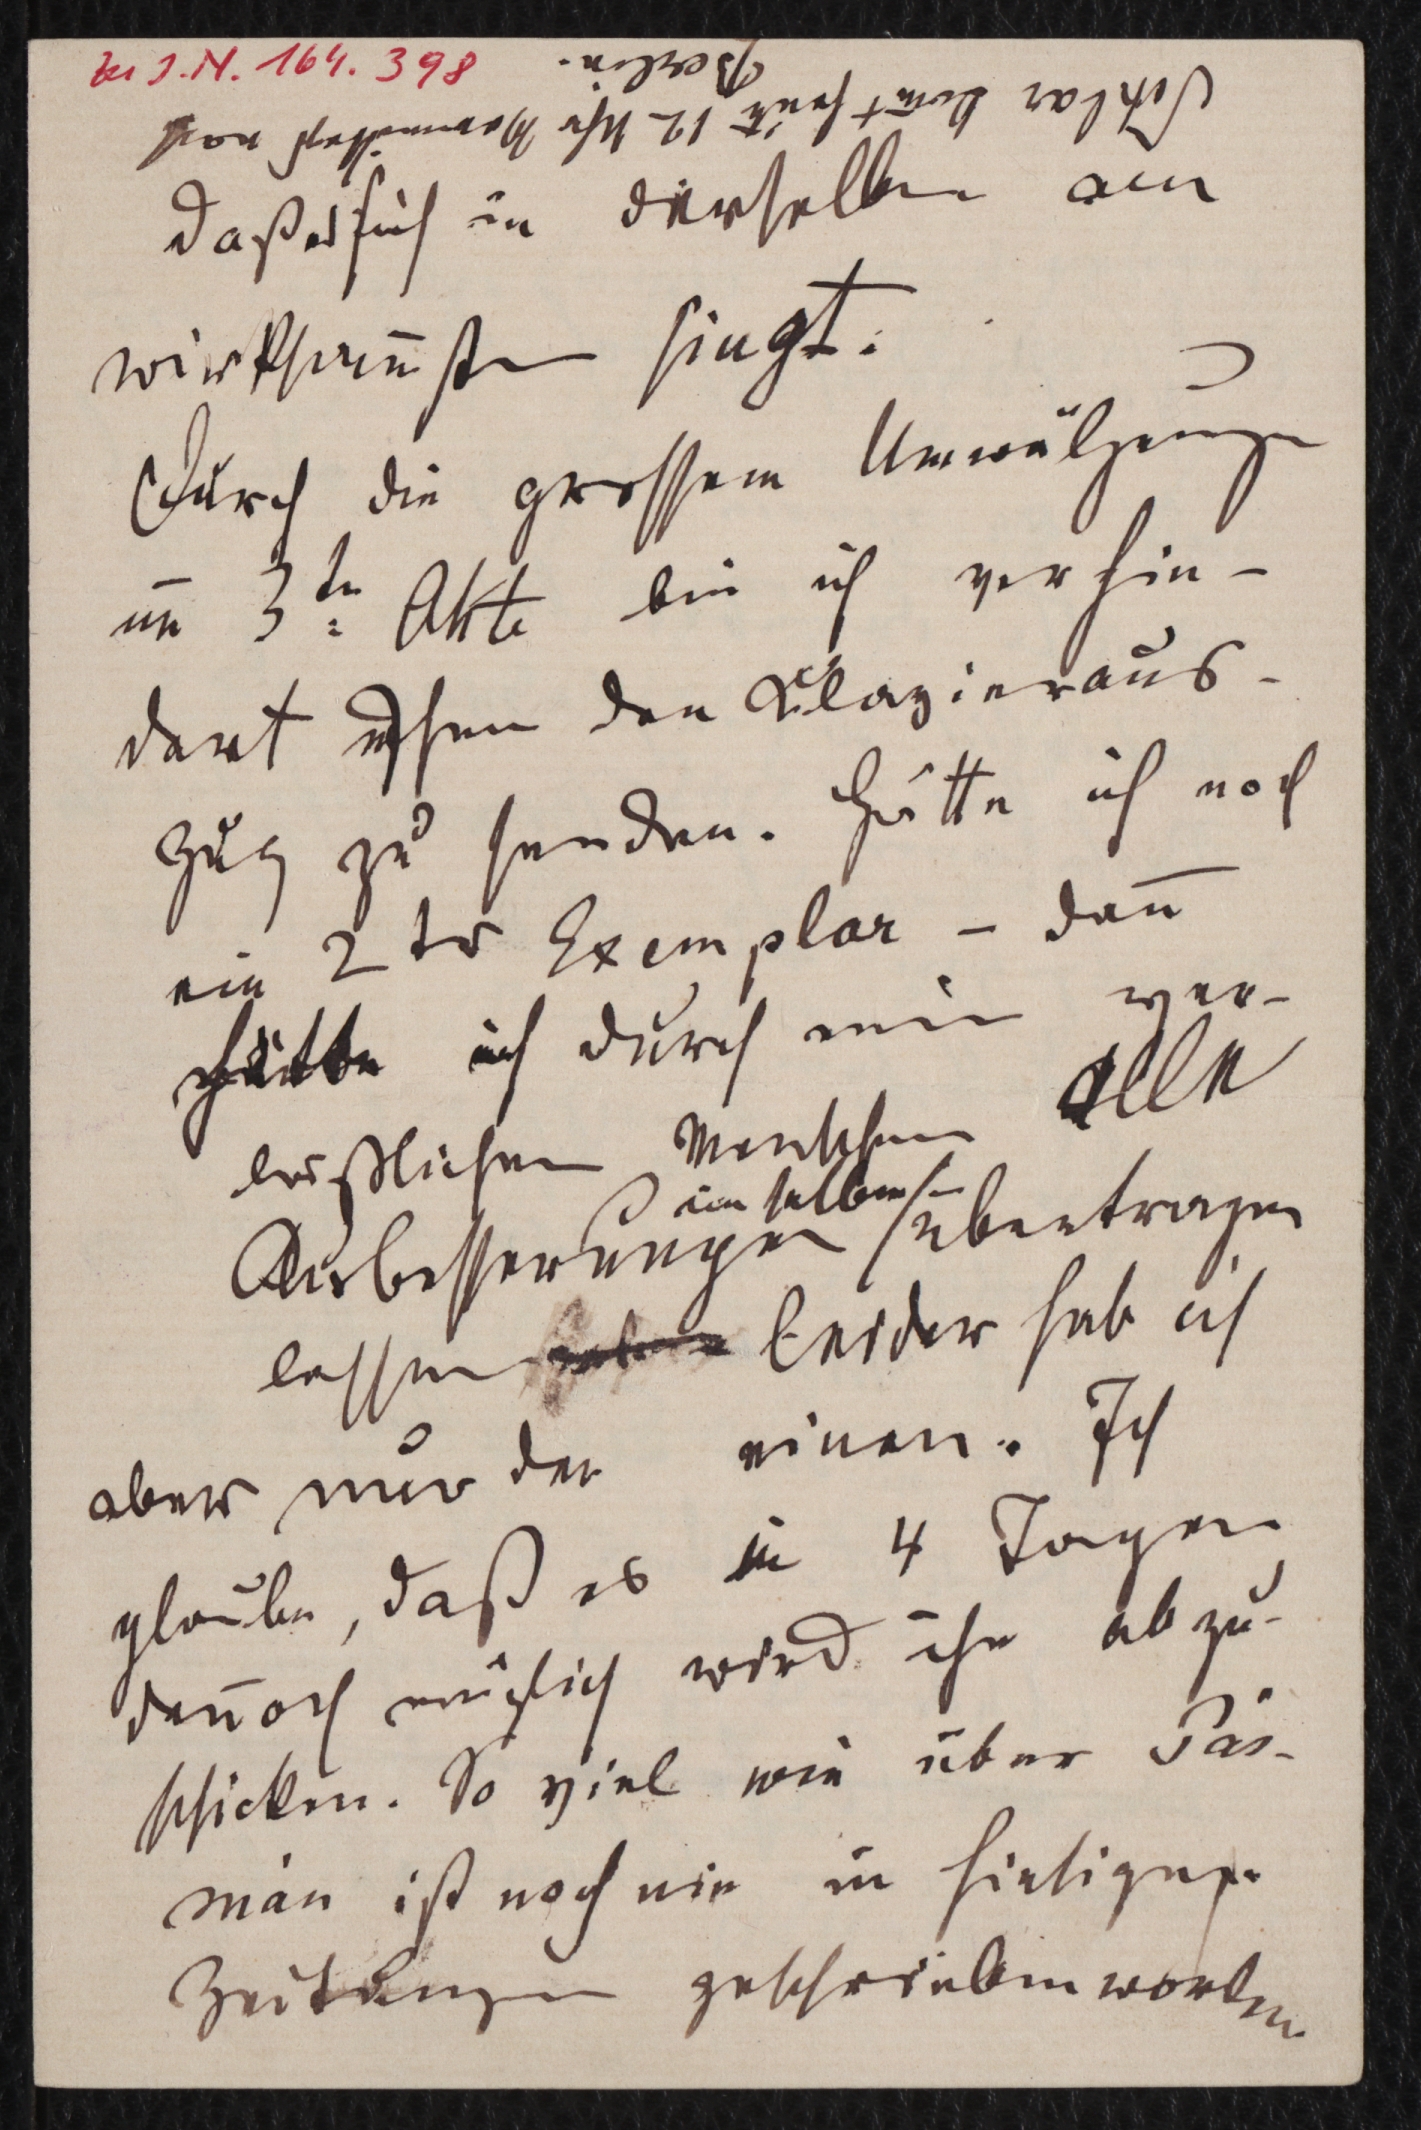 zu I.N. 164.398
daß es sich in derselben am
wirksam̅sten singt.
Durch die grossem Umwälzungen
im 3ten Akte bin ich verhin-
dert Ihnen den Klavieraus-
zug zu senden. Hätte ich noch
ein 2tes Exemplar – dan̅
hätte ich durch einen ver-
läßlichen Menschen alle
Ausbesserungen im selben übertragen
lassen leider hab ich
aber nur den einen. Ich
glaube, daß es in 4 Tagen
den̅och möglich wird ihn abzu-
schicken. So viel wie über Kás-
mán ist noch nie in hiesigen
Zeitungen geschrieben worden.
kom̅t heute 12 Uhr Vormittag nach
Berlin.